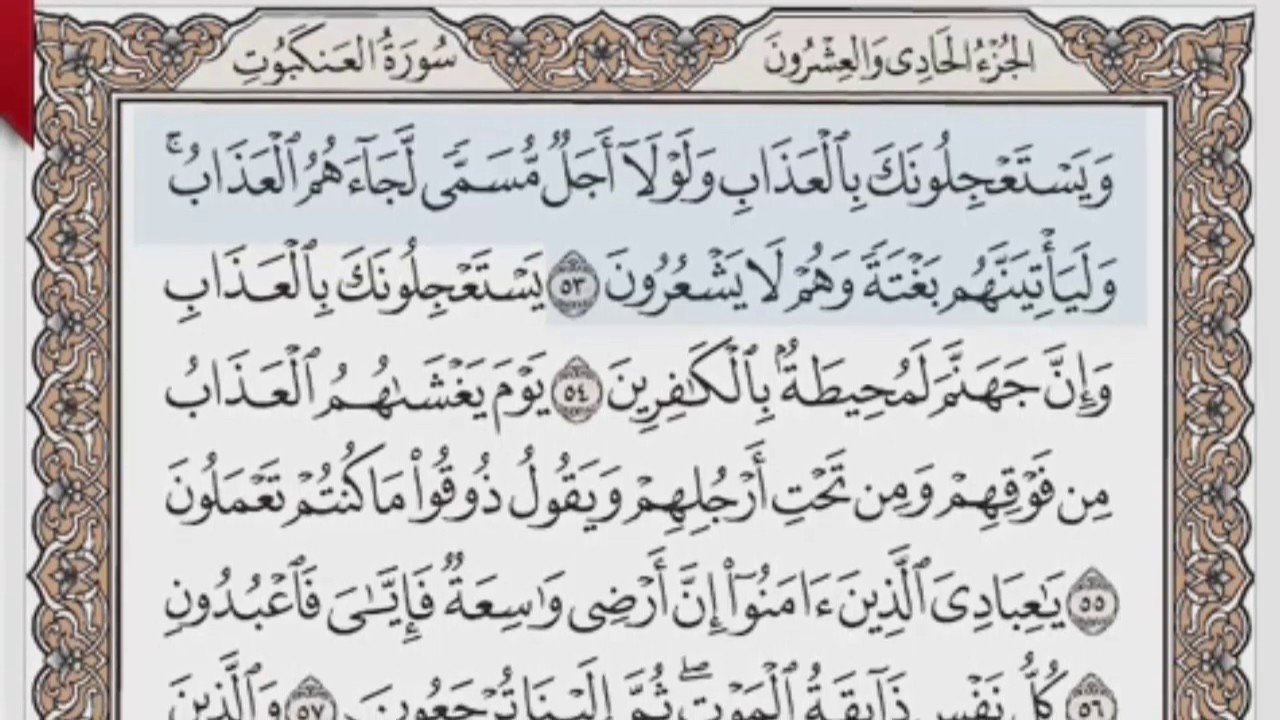 الجُزْءُ الحَادِى وَالعِشْرُونَ
سُورَةُ العَنكَبُوتِ
وَيَسْتَعْجِلُونَكَ بِٱلْعَذَابِ وَلَوْلَآ أَجَلٌ مُّسَمًّى لَّجَآءَهُمُ ٱلْعَذَابُۚ
وَلَيَأْتِيَنَّهُم بَغْتَةً وَهُمْ لَا يَشْعُرُونَ ٥٣ يَسْتَعْجِلُونَكَ بِٱلْعَذَابِ
وَإِنَّ جَهَنَّمَ لَمُحِيطَةٌۢ بِٱلْكَٰفِرِينَ ٥٤ يَوْمَ يَغْشَىٰهُمُ ٱلْعَذَابُ
مِن فَوْقِهِمْ وَمِن تَحْتِ أَرْجُلِهِمْ وَيَقُولُ ذُوقُوا۟ مَا كُنتُمْ تَعْمَلُونَ
٥٥ يَٰعِبَادِىَ ٱلَّذِينَ ءَامَنُوٓا۟ إِنَّ أَرْضِى وَٰسِعَةٌ فَإِيَّٰىَ فَٱعْبُدُونِ
٥٦ كُلُّ نَفْسٍ ذَآئِقَةُ ٱلْمَوْتِۖ ثُمَّ إِلَيْنَا تُرْجَعُونَ ٥٧ وَٱلَّذِينَ